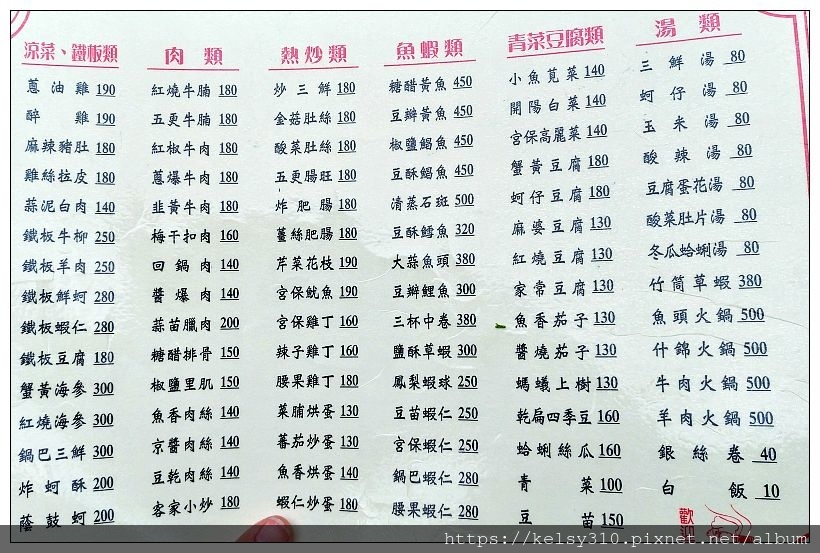 涼菜、鐵板類
蔥油雞 190
醉雞 190
麻辣豬肚 180
雞絲拉皮 180
蒜泥白肉 140
鐵板牛柳 250
鐵板羊肉 250
鐵板鮮蚵 280
鐵板蝦仁 280
鐵板豆腐 180
蟹黃海參 300
紅燒海參 300
鍋巴三鮮 300
炸蚵酥 200
蔭鼓蚵 200
肉類
紅燒牛腩 180
五更牛腩 180
紅椒牛肉 180
蔥爆牛肉 180
韭黃牛肉 180
梅干扣肉 160
回鍋肉 140
醬爆肉 140
蒜苗臘肉 200
糖醋排骨 150
椒鹽里肌 150
魚香肉絲 140
京醬肉絲 140
豆乾肉絲 140
客家小炒 180
熱炒類
炒三鮮 180
金菇肚絲 180
酸菜肚絲 180
五更腸旺 180
炸肥腸 180
薑絲肥腸 180
芹菜花枝 190
宮保魷魚 190
宮保雞丁 160
辣子雞丁 160
腰果雞丁 180
菜脯烘蛋 130
蕃茄炒蛋 130
魚香烘蛋 140
蝦仁炒蛋 180
魚蝦類
糖醋黃魚 450
豆瓣黃魚 450
椒鹽鯧魚 450
豆酥鯧魚 450
清蒸石斑 500
豆酥鱈魚 320
大蒜魚頭 380
豆瓣鯉魚 300
三杯中卷 380
鹽酥草蝦 300
鳳梨蝦球 250
豆苗蝦仁 250
宮保蝦仁 250
鍋巴蝦仁 280
腰果蝦仁 280
青菜豆腐類
小魚莧菜 140
開陽白菜 140
宮保高麗菜 140
蟹黃豆腐 180
蚵仔豆腐 180
麻婆豆腐 130
紅燒豆腐 130
家常豆腐 130
魚香茄子 130
醬燒茄子 130
螞蟻上樹 130
乾扁四季豆 160
蛤蜊絲瓜 160
青菜 100
豆苗 150
湯類
三鮮湯 80
蚵仔湯 80
玉米湯 80
酸辣湯 80
豆腐蛋花湯 80
酸菜肚片湯 80
冬瓜蛤蜊湯 80
竹筒草蝦 380
魚頭火鍋 500
什錦火鍋 500
牛肉火鍋 500
羊肉火鍋 500
銀絲卷 40
白飯 10
歡迎
https://kelsy310.pixnet.net/album